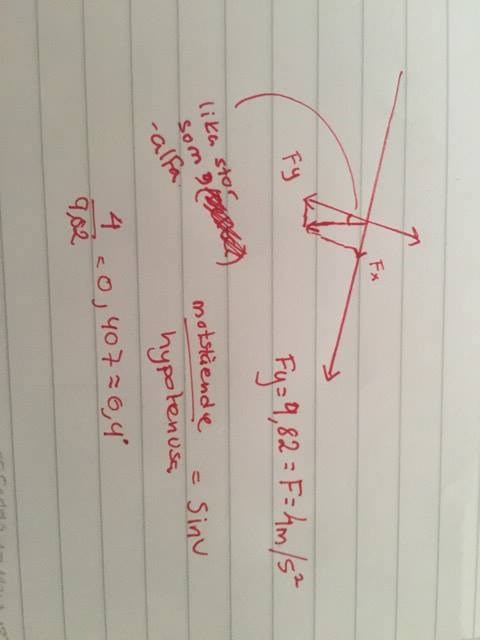 Fx
Fy
lika stor
som
-alfa
Fy=9,82=F=4m/s²
motstående
hypotenusa
= sinv
4
9,82
=0,407≈0,4°